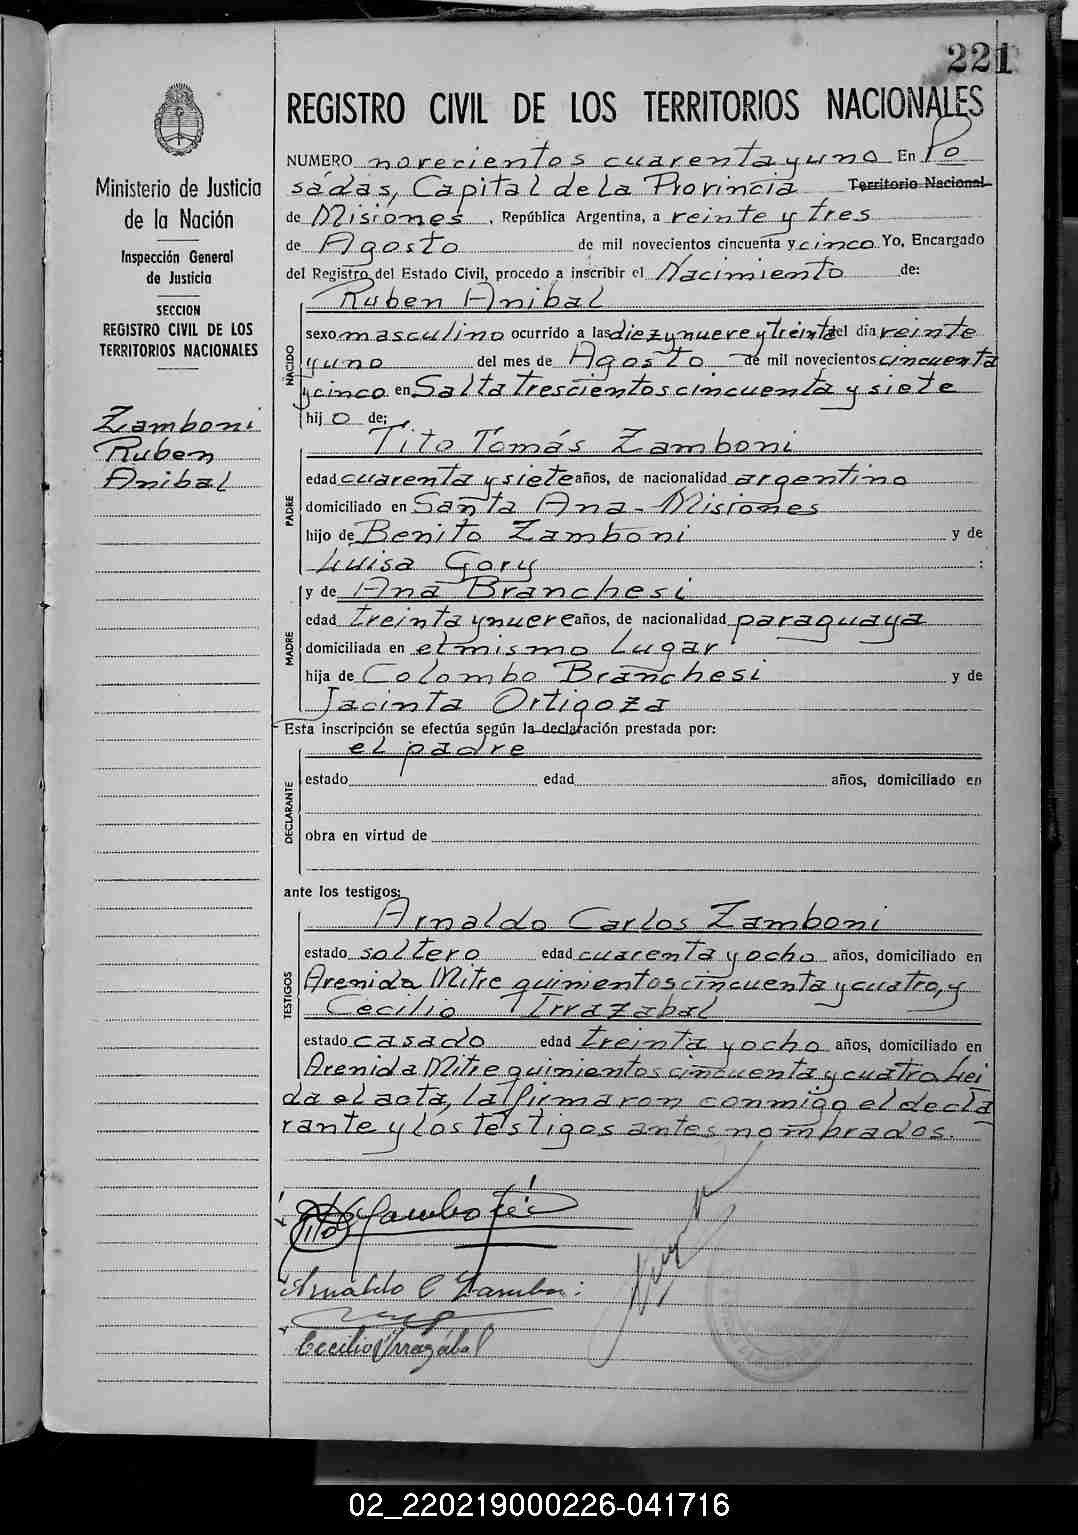 221
REGISTRO CIVIL DE LOS TERRITORIOS NACIONALES
Ministerio de Justicia
de la Nación
Inspección General
de Justicia
SECCION
REGISTRO CIVIL DE LOS
TERRITORIOS NACIONALES
Zamboni
Ruben
Anibal
NUMERO novecientos cuarenta y uno En Po
sadas, Capital de la Provincia Territorio Nacional
de Misiones, República Argentina, a veinte y tres
de Agosto de mil novecientos cincuenta y cinco Yo, Encargado
del Registro del Estado Civil, procedo a inscribir el Nacimiento de:
NACIDO
Ruben Anibal
sexo masculino ocurrido a las diez y nueve y treinta del día veinte
y uno del mes de Agosto de mil novecientos cincuenta
y cinco en Salta trescientos cincuenta y siete
hij o de:
PADRE
Tito Tomás Zamboni
edad cuarenta y siete años, de nacionalidad argentino
domiciliado en Santa Ana - Misiones
hijo de Benito Zamboni y de
Luisa Gory :
MADRE
y de Ana Branchesi
edad treinta y nueve años, de nacionalidad paraguaya
domiciliada en el mismo Lugar
hija de Colombo Branchesi y de
Jacinta Ortigoza
Esta inscripción se efectúa según la declaración prestada por:
DECLARANTE
el padre
estado edad años, domiciliado en
obra en virtud de
ante los testigos:
TESTIGOS
Arnaldo Carlos Zamboni
estado soltero edad cuarenta y ocho años, domiciliado en
Avenida Mitre quinientos cincuenta y cuatro, y
Cecilio Irrazabal
estado casado edad treinta y ocho años, domiciliado en
Avenida Mitre quinientos cincuenta y cuatro Lei
da el acta, la firmaron conmigo el decla
rante y los testigos antes nombrados.
Arnaldo C Zamboni
Cecilio Irrazábal
02_220219000226-041716